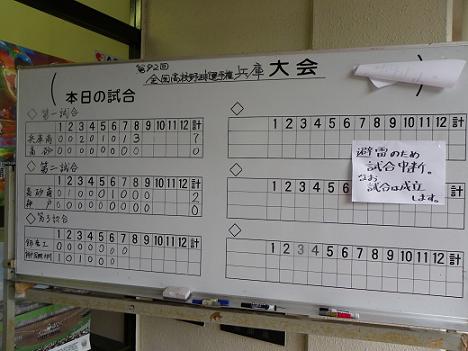 第92回
全国高校野球選手権兵庫大会
本日の試合
◇第一試合
1 2 3 4 5 6 7 8 9 10 11 12 計
兵庫商 0 0 2 0 1 0 1 3 7
高砂 0 0 0 0 0 0 0 0
◇第二試合
1 2 3 4 5 6 7 8 9 10 11 12 計
高砂南
神戸
◇第3試合
1 2 3 4 5 6 7 8 9 10 11 12 計
0 0 0 0 0 0 0
1 0 1 0 0 0
◇
1 2 3 4 5 6 7 8 9 10 11 12 計
◇
1 2 3 4 5 6 7 8 9 10 11 12 計
◇
1 2 3 4 5 6 7 8 9 10 11 12 計
避雷のため
試合中断。
なお
試合は成立
します。